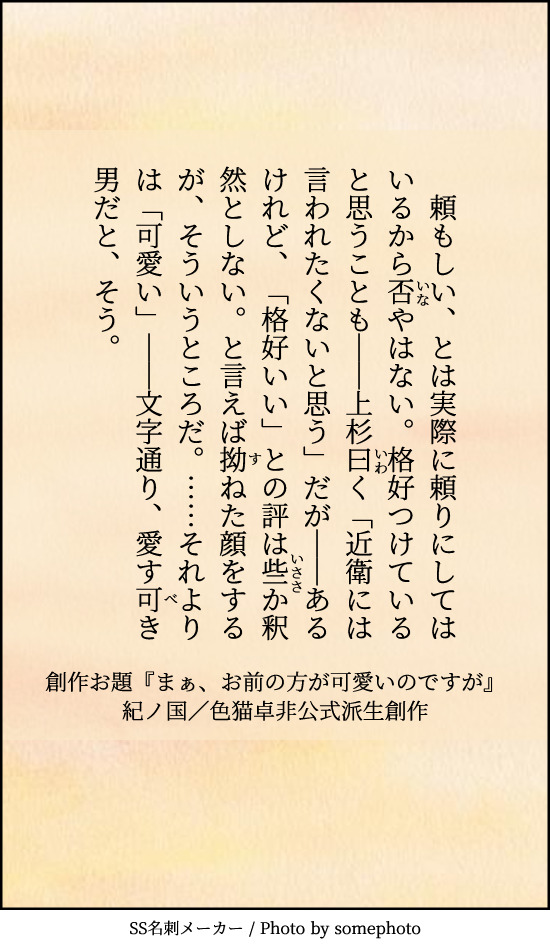 頼もしい、とは実際に頼りにしては
いるから否やはない。格好つけている
と思うことも――上杉曰く「近衛には
言われたくないと思う」だが――ある
けれど、「格好いい」との評は些か釈
然としない。と言えば拗ねた顔をする
が、そういうところだ。……それより
は「可愛い」――文字通り、愛す可き
男だと、そう。
いな
いわ
いささ
す
べ
創作お題『まぁ、お前の方が可愛いのですが』
紀ノ国／色猫卓非公式派生創作
SS名刺メーカー / Photo by somephoto